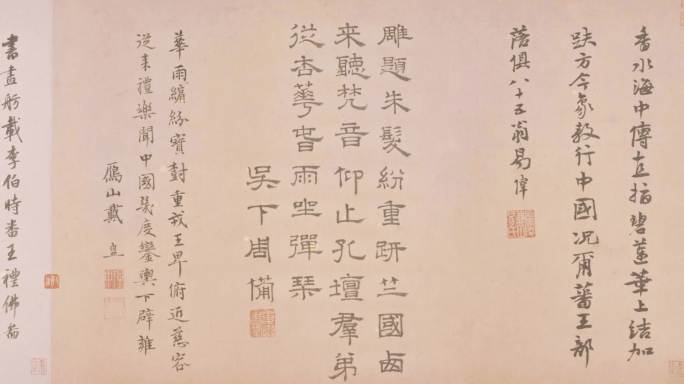 香水海中傳直指碧蓮華上結加
趺方今象教行中國況爾蕃王部
落俱八十五翁易偉
雕題朱髮紛重趼竺國西
来聽梵音仰止孔壇羣弟
從杏華旹雨坐彈琹
吳下周備
華雨繽紛寶樹重戎王俯近慈容
從来禮樂聞中國幾度鑾輿下辟雍
鴈山戴
書畫舫載李伯時番王禮佛啚